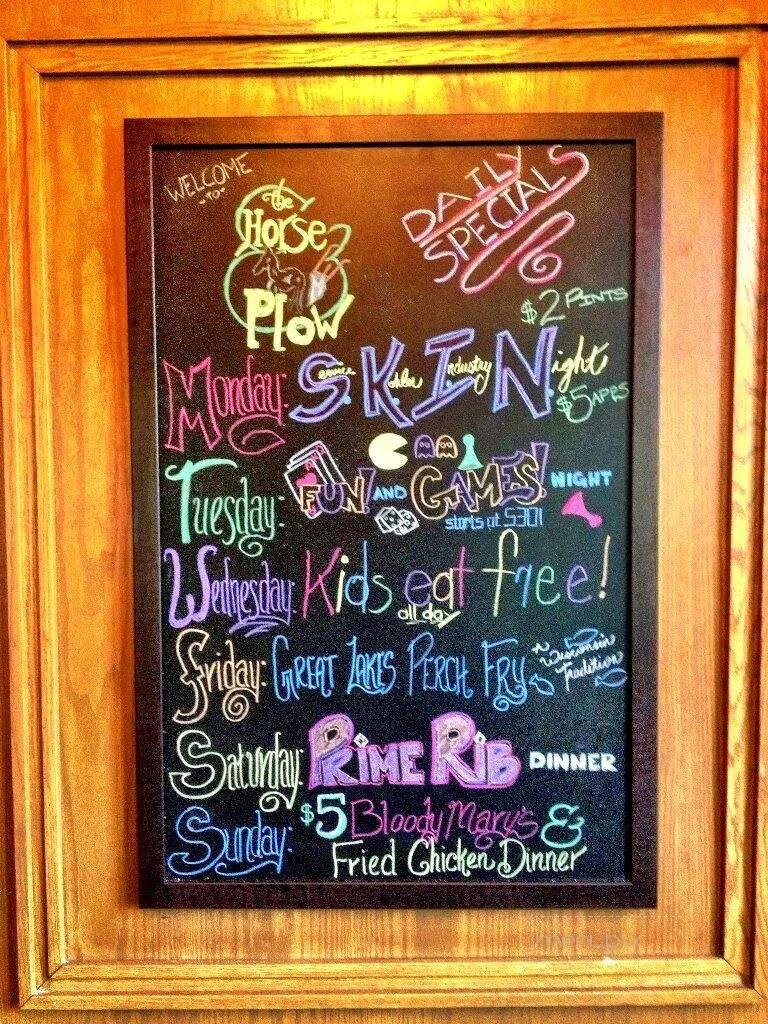 WELCOME
-TO-
The
Horse
&
Plow
DAILY
SPECIALS
$2 PINTS
Monday: S.K.I.Night
Service Kohler Industry
$5 APPS
Tuesday: FUN! AND GAMES! NIGHT
starts at 5301
Wednesday: Kids eat free!
all day
Friday: GREAT LAKES PERCH FRY
~Wisconsin
Tradition
Saturday: PRIME RIB DINNER
Sunday: $5 Bloody Mary's &
Fried Chicken Dinner